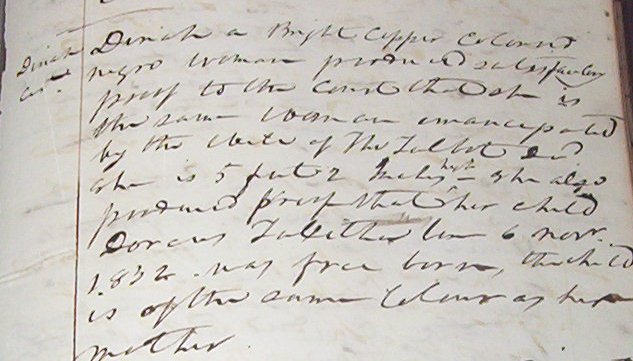 Dinah
Dinah a Bright Copper Coloured
negro woman produced satisfactory
proof to the Court that she is
the same woman emancipated
by the will of Tho Talbot Decd
she is 5 feet 2 Inches high - she also
produced proof that her child
Dorcus born 6 Novr.
1832. was free born, the child
is of the same Colour as her
mother.